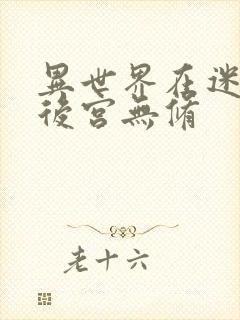 異世界在迷
後宮無脩
老十六